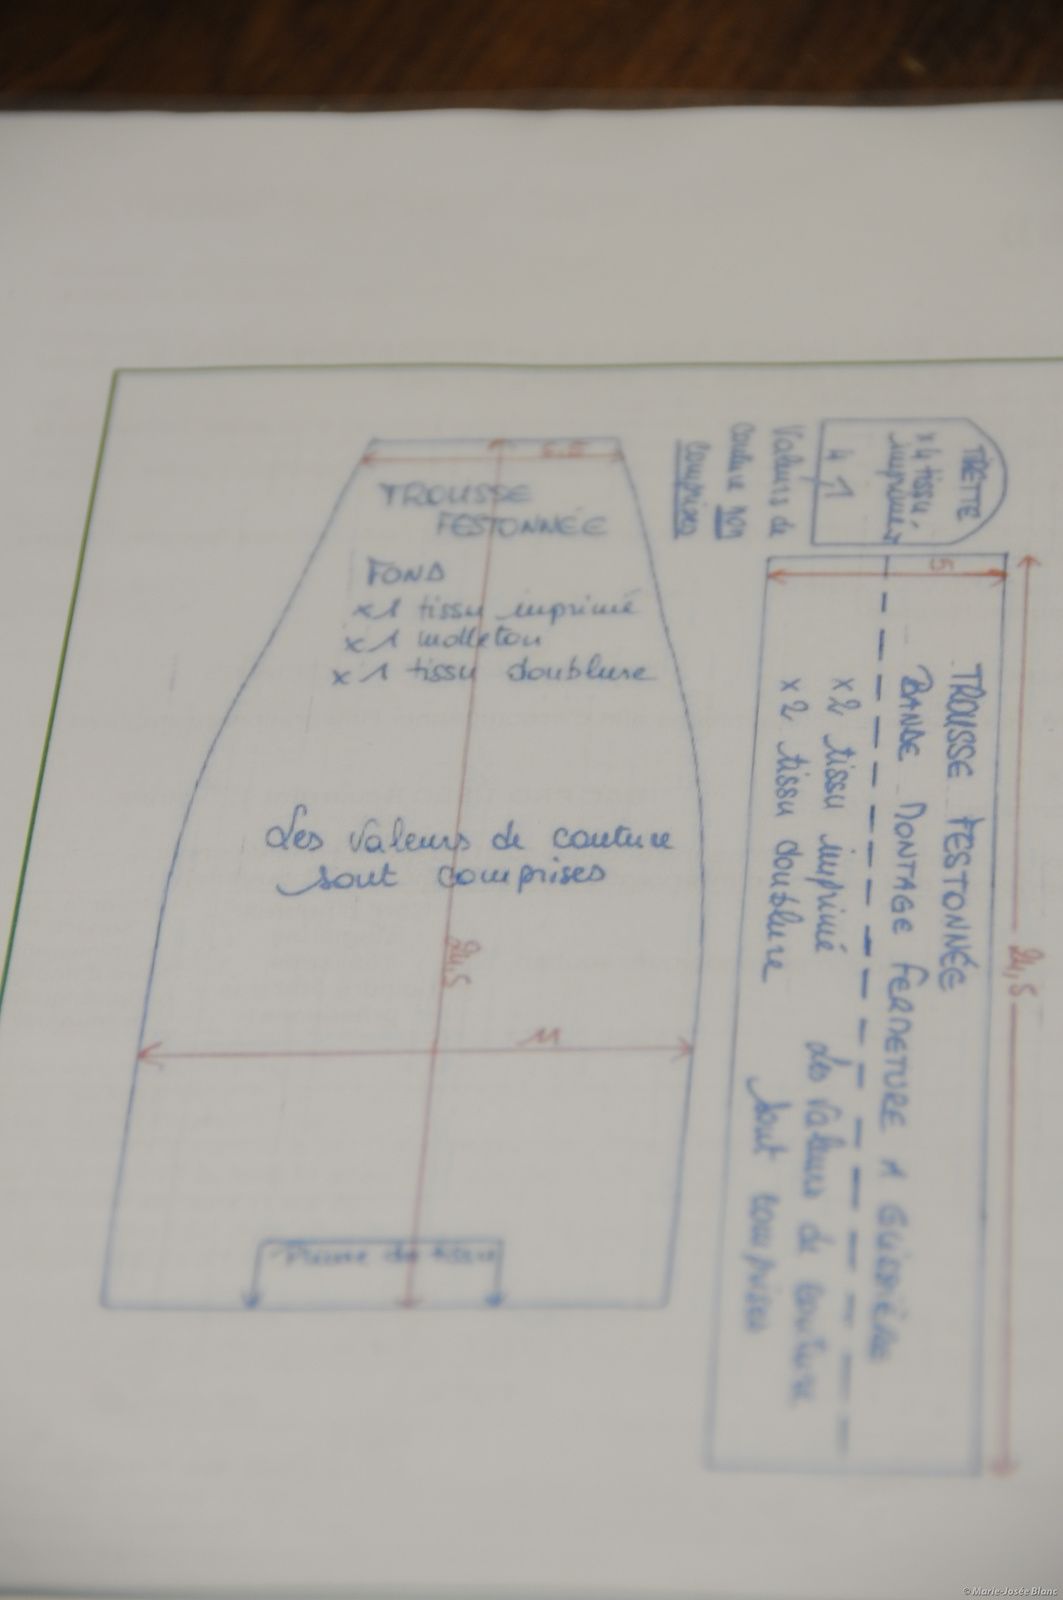 TROUSSE
FESTONNÉE
FOND
x1 tissu imprimé
x1 molleton
x1 tissu doublure
Les valeurs de couture
sont comprises
24,5
11
Pliure de tissu
TIRETTE
x4 tissu
imprimé
4 1
Valeurs de
couture non
comprises
5
24,5
TROUSSE FESTONNÉE
BANDE MONTAGE FERMETURE A GLISSIÈRE
x2 tissu imprimé
x2 tissu doublure
Les valeurs de couture
sont comprises
©Marie-Josée Blanc